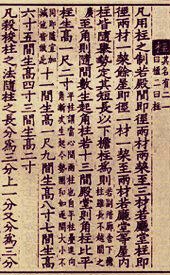 柱其名有二一曰楹二曰柱
凡用柱之制若殿間即徑兩材兩栔至三材若廳堂柱即
徑兩材一栔餘屋即徑一材一栔至兩材若廳堂等屋內
柱皆隨舉勢定其短長以下檐柱為則若副階廊舍下檐柱雖長不越間之
廣至角則隨間數生起角柱若十三間殿堂則角柱比平
柱生高一尺二寸平柱謂當心間兩柱也自平柱疊進向角漸次生起令勢圜和如逐間大小不同
即隨宜加減他皆倣此十一間生高一尺九間生高八寸七間生高
六寸五間生高四寸三間生高二寸
凡殺梭柱之法隨柱之長分為三分上一分又分為三分